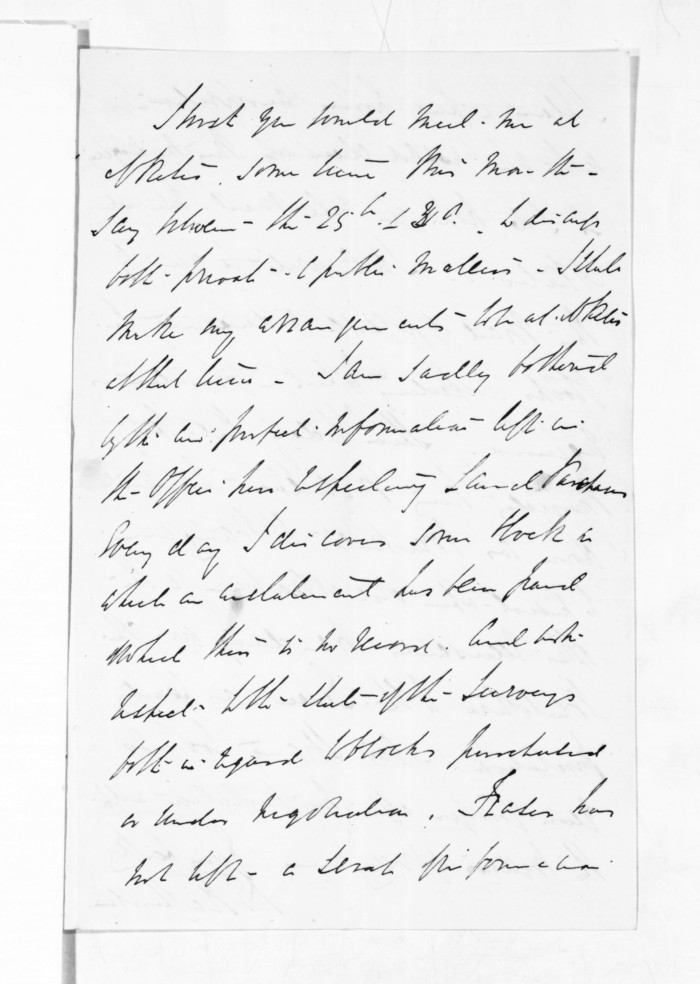 I trust you would meet me at
Oketis, some time this month -
Say between the 25th & 31st. to discuss
both private & public matters - I shall
make my arrangements to be at Oketis
at that time - I am sadly bothered
by the imperfect information left in
the Office here respecting Land Purchases
Every day I discover some block in
which an instalment has been paid
of which there is no record. And with
respect to the state of the Surveys
both in regard to blocks purchased
or under negotiation, Fraser has
not left a scrap of information